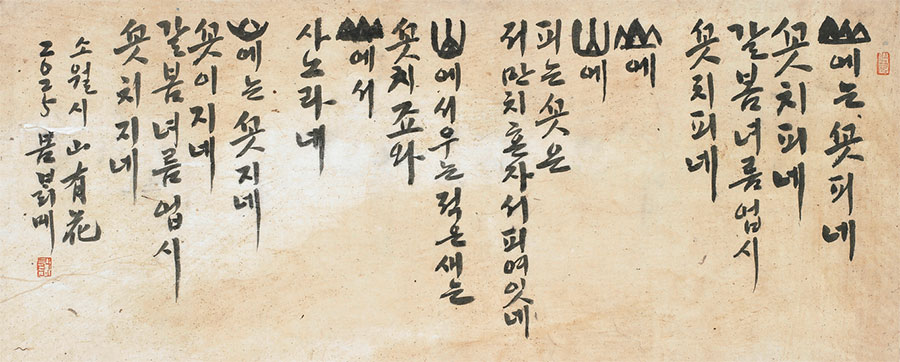 山에는 꼿피네
꼿치피네
갈봄녀름업시
꼿치피네
山에
山에
피는꼿은
저만치혼자서피여잇네
山에서우는적은새는
꼿치죠와
山에서
사노라네
山에는꼿지네
꼿이지네
갈봄녀름업시
꼿치지네
소월시 山有花
2025 봄 밝메